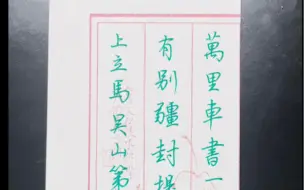 萬里車書一
有别疆封提
上立馬吴山第